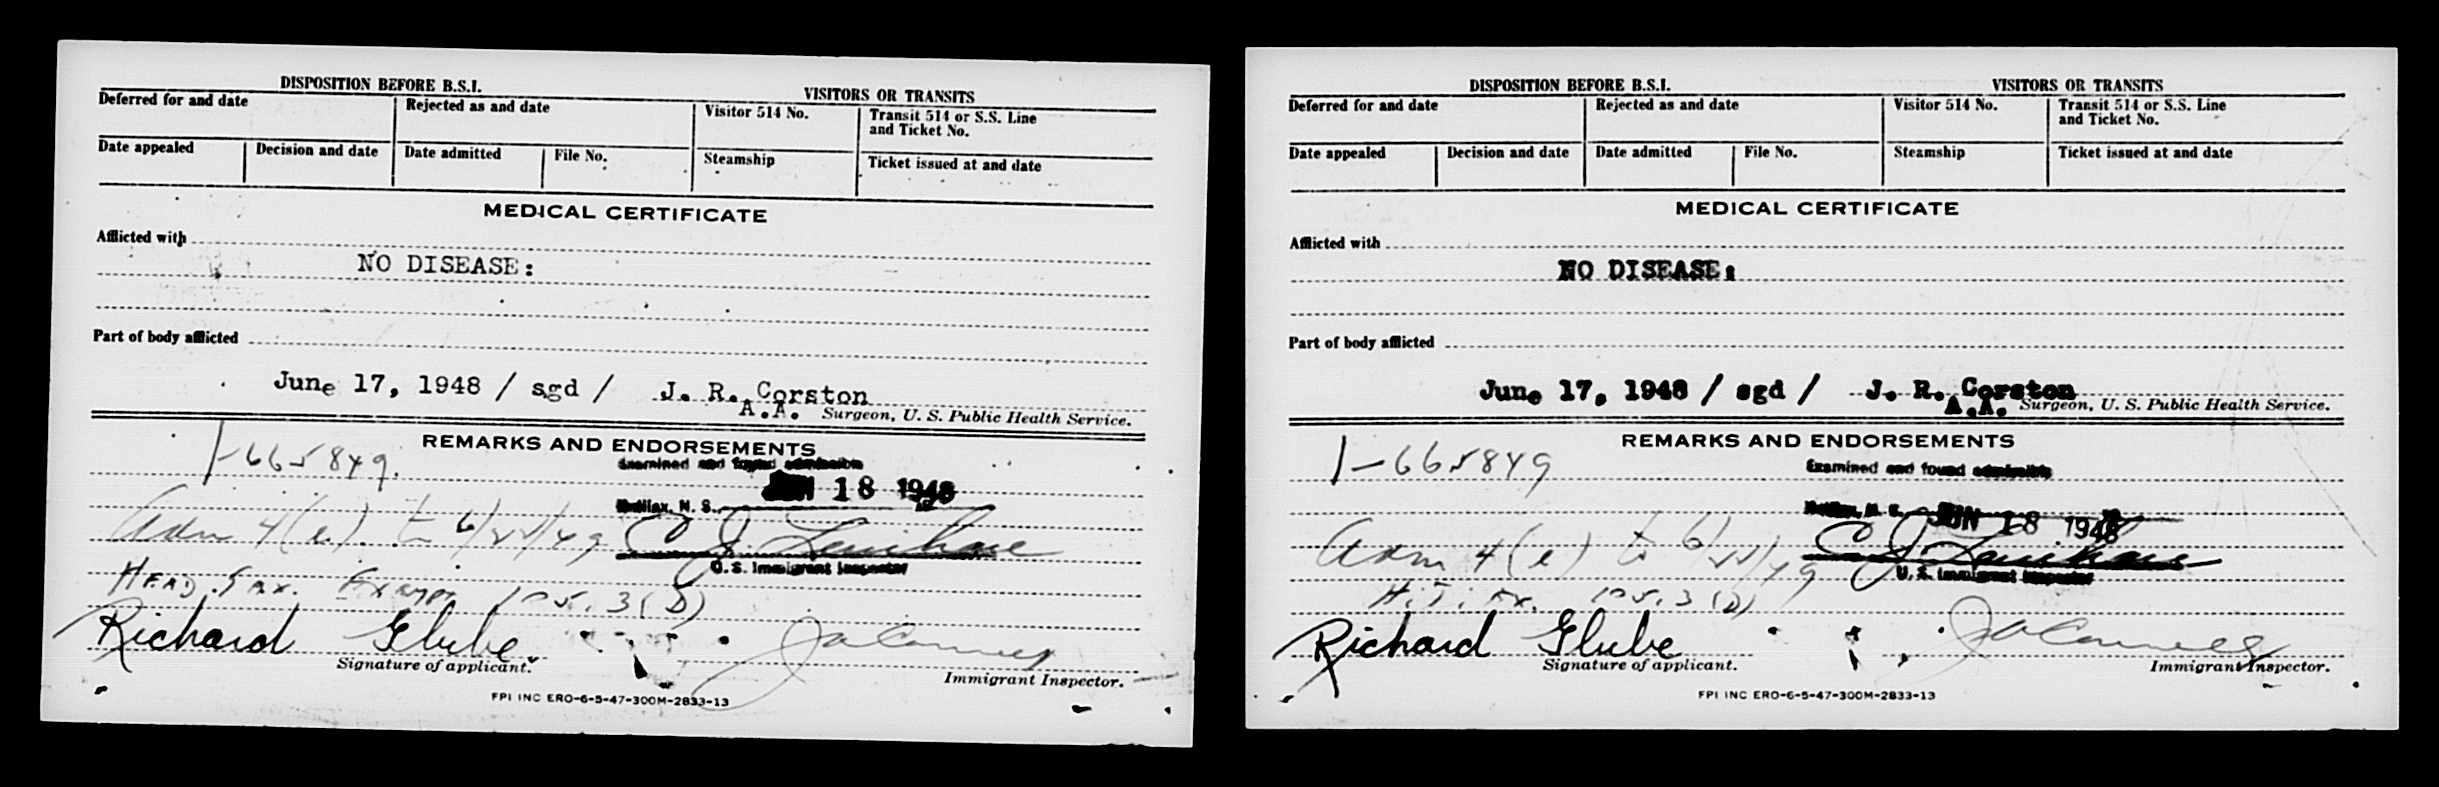 DISPOSITION BEFORE B.S.I. VISITORS OR TRANSITS
Deferred for and date Rejected as and date Visitor 514 No. Transit 514 or S.S. Line
and Ticket No.
Date appealed Decision and date Date admitted File No. Steamship Ticket issued at and date
MEDICAL CERTIFICATE
Afflicted with
NO DISEASE:
Part of body afflicted
June 17, 1948 / sgd / J. R. Corston
A.A. Surgeon, U. S. Public Health Service.
REMARKS AND ENDORSEMENTS
1-665849.
Examined and found admissible
JUN 18 1948
Halifax, N. S.
Adm 4(e) to 6/
/49
U. S. Immigrant Inspector
HEAD TAX. Exempt 105.3(D)
Richard Glube
Signature of applicant.
Immigrant Inspector.
FPI INC ERO-6-5-47-300M-2833-13
DISPOSITION BEFORE B.S.I. VISITORS OR TRANSITS
Deferred for and date Rejected as and date Visitor 514 No. Transit 514 or S.S. Line
and Ticket No.
Date appealed Decision and date Date admitted File No. Steamship Ticket issued at and date
MEDICAL CERTIFICATE
Afflicted with
NO DISEASE:
Part of body afflicted
June 17, 1948 / sgd / J. R. Corston
A.A. Surgeon, U. S. Public Health Service.
REMARKS AND ENDORSEMENTS
1-665849
Examined and found admissible
Halifax, N. S. JUN 18 1948
Adm 4(e) to 6/
/49
U. S. Immigrant Inspector
H.T. Ex. 105.3(D)
Richard Glube
Signature of applicant.
Immigrant Inspector.
FPI INC ERO-6-5-47-300M-2833-13